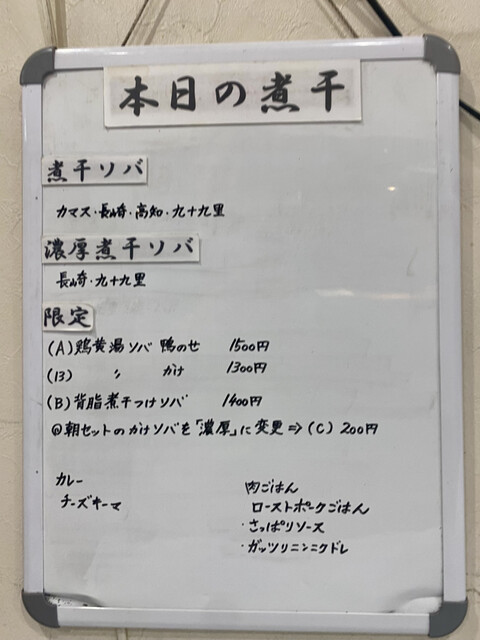 本日の煮干
煮干ソバ
カマス・長崎・高知・九十九里
濃厚煮干ソバ
長崎・九十九里
限定
(A)鶏黄湯ソバ 鴨のせ 1500円
(13) 〃 かけ 1300円
(B)背脂煮干つけソバ 1400円
◎朝セットのかけソバを「濃厚」に変更⇒(C)200円
カレー
チーズキーマ
肉ごはん
ローストポークごはん
・さっぱりソース
・ガッツリニンニクドレ